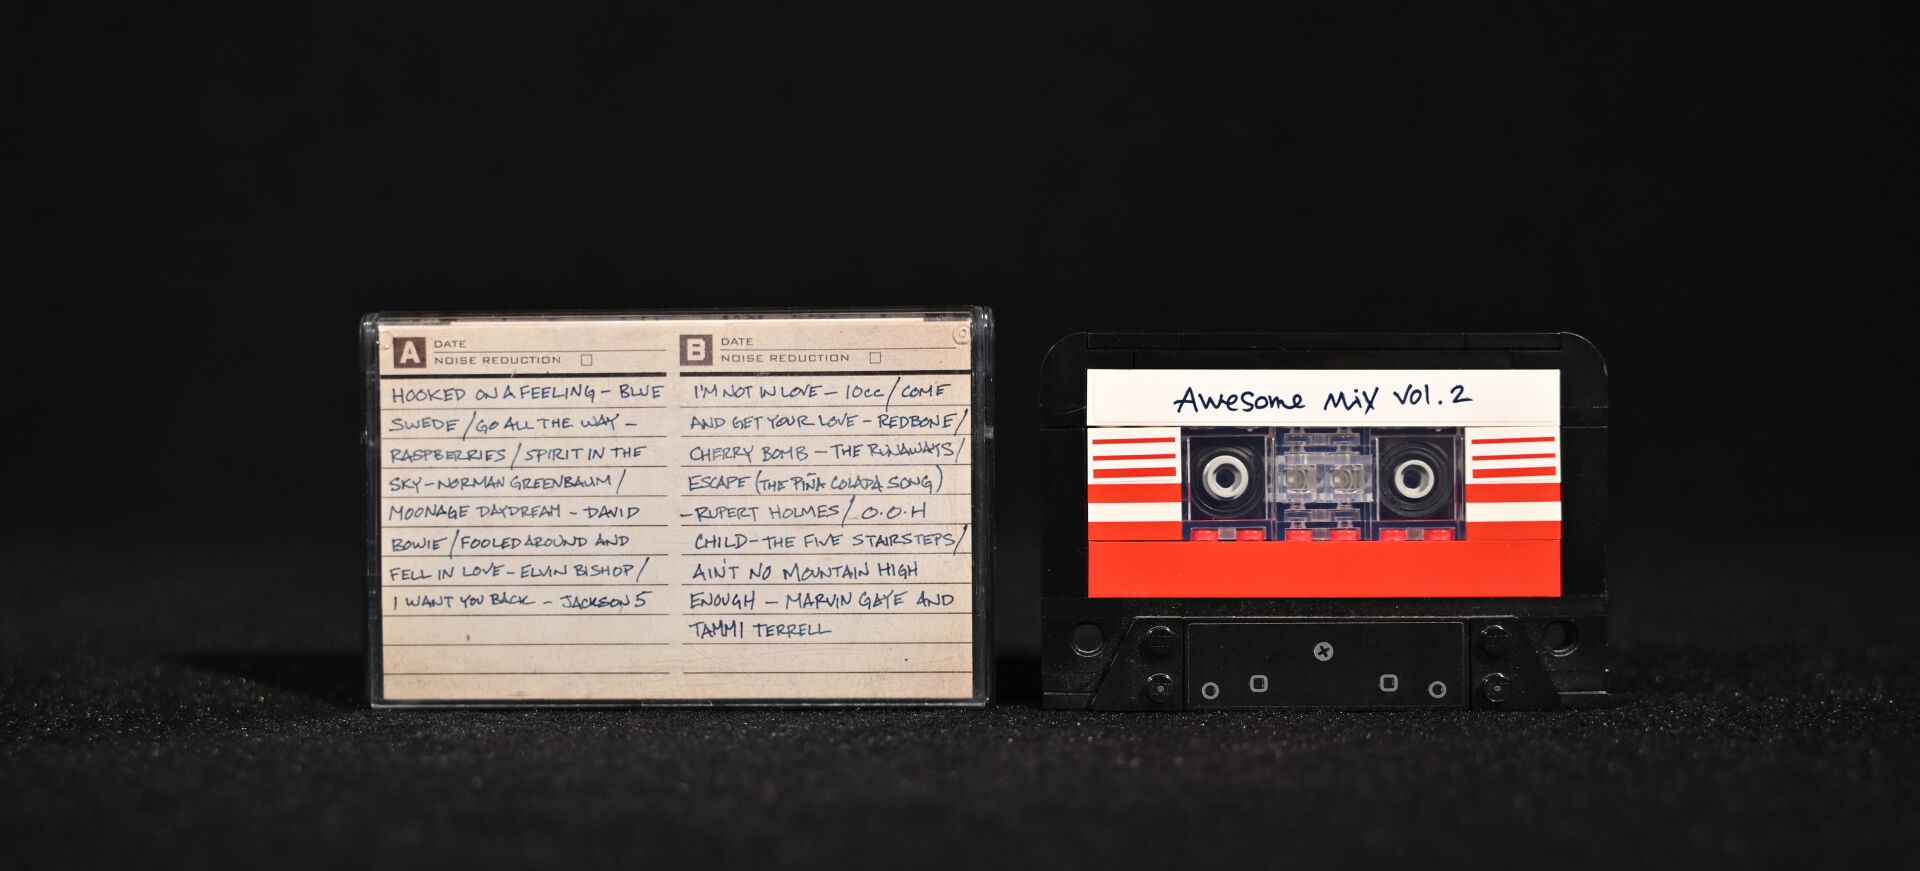 A DATE
NOISE REDUCTION
HOOKED ON A FEELING - BLUE
SWEDE / GO ALL THE WAY -
RASPBERRIES / SPIRIT IN THE
SKY - NORMAN GREENBAUM /
MOONAGE DAYDREAM - DAVID
BOWIE / FOOLED AROUND AND
FELL IN LOVE - ELVIN BISHOP /
I WANT YOU BACK - JACKSON 5
B DATE
NOISE REDUCTION
I'M NOT IN LOVE - 10cc / COME
AND GET YOUR LOVE - REDBONE /
CHERRY BOMB - THE RUNAWAYS /
ESCAPE (THE PIÑA COLADA SONG)
- RUPERT HOLMES / O.O.H
CHILD - THE FIVE STAIRSTEPS /
AIN'T NO MOUNTAIN HIGH
ENOUGH - MARVIN GAYE AND
TAMMI TERRELL
Awesome Mix Vol. 2